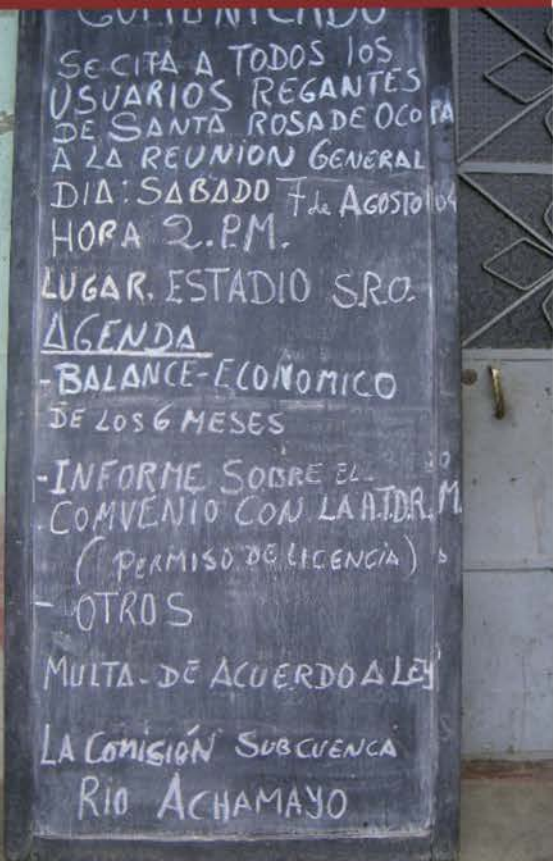 COMUNICADO
SE CITA A TODOS lOS
USUARIOS REGANTES
DE SANTA ROSA DE OCOPA
A LA REUNION GENERAL
DIA: SABADO 7 de AGOSTO 04
HORA 2.P.M.
LUGAR. ESTADIO S.R.O.
AGENDA
-BALANCE-ECONOMICO
DE LOS 6 MESES
-INFORME SOBRE EL
COMVENIO CON LA A.T.D.R.M
(PERMISO DE LICENCIA)
- OTROS
MULTA-DE ACUERDO A LEY
LA COMISIÓN SUBCUENCA
RIO ACHAMAYO